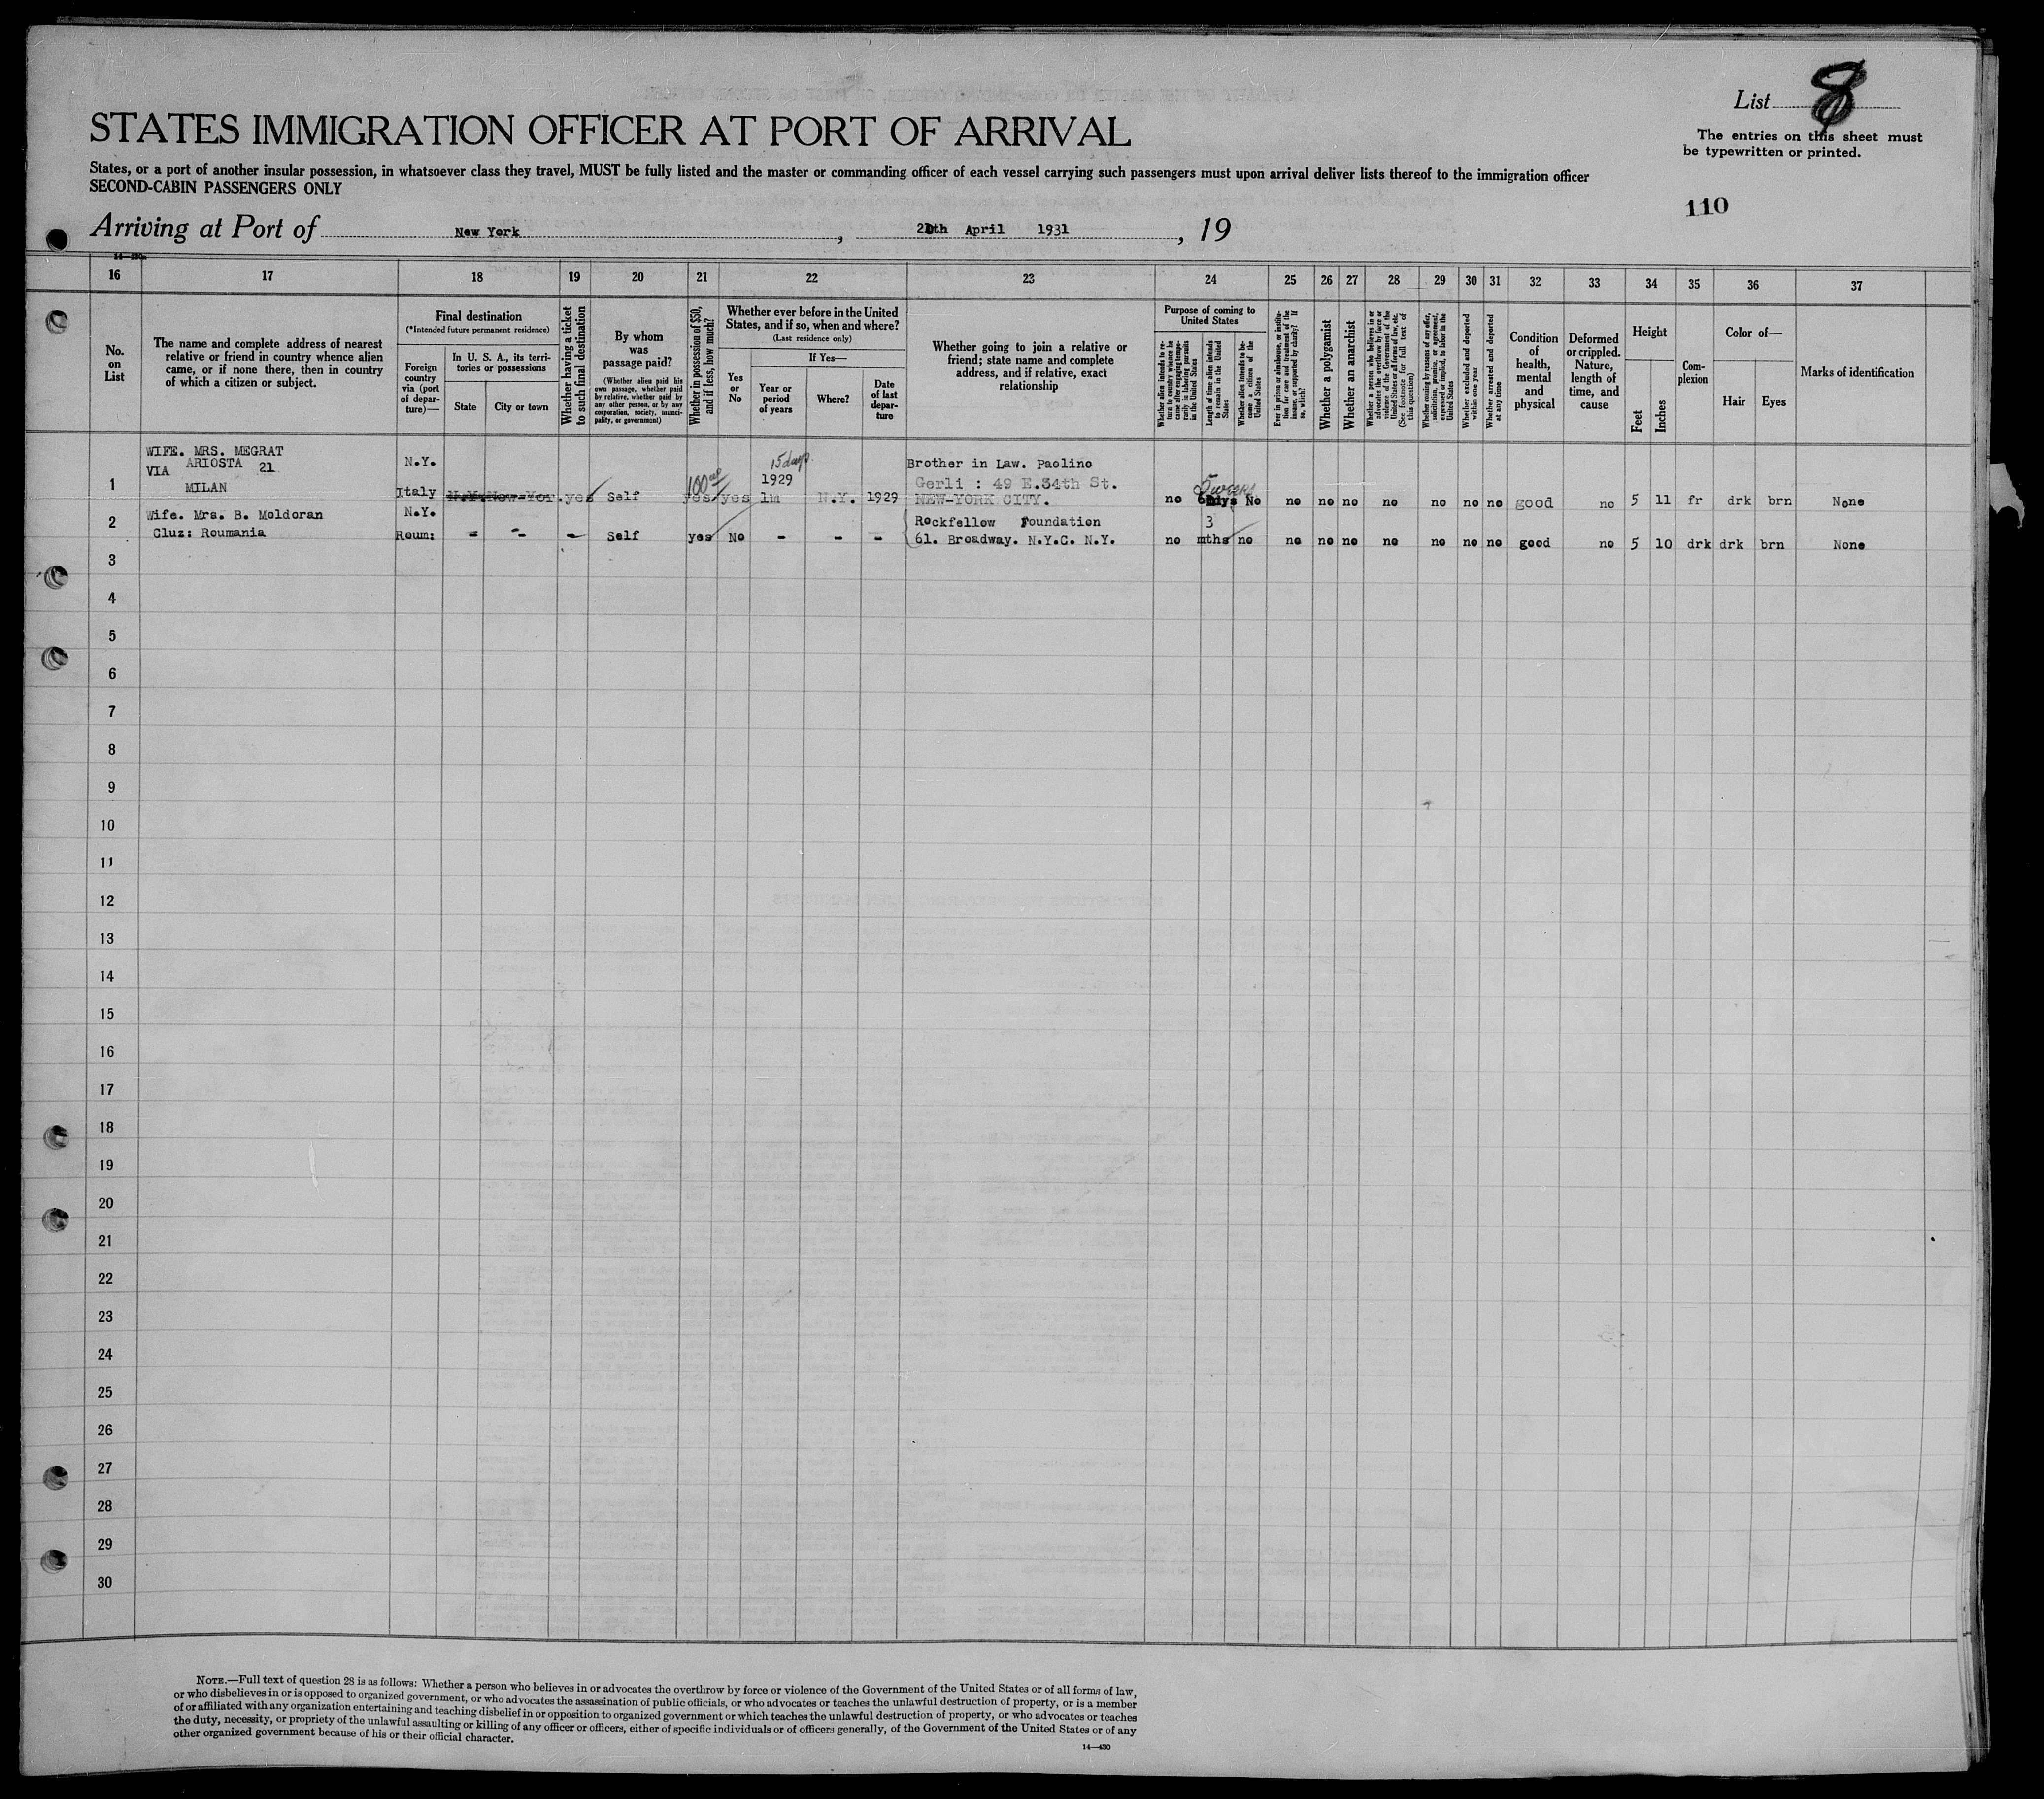 List 8
STATES IMMIGRATION OFFICER AT PORT OF ARRIVAL
The entries on this sheet must
be typewritten or printed.
States, or a port of another insular possession, in whatsoever class they travel, MUST be fully listed and the master or commanding officer of each vessel carrying such passengers must upon arrival deliver lists thereof to the immigration officer
SECOND-CABIN PASSENGERS ONLY
110
Arriving at Port of New York, April 1931, 19
14—430
16 17 18 19 20 21 22 23 24 25 26 27 28 29 30 31 32 33 34 35 36 37
No.
on
List
The name and complete address of nearest
relative or friend in country whence alien
came, or if none there, then in country
of which a citizen or subject.
Final destination
(*Intended future permanent residence)
Foreign
country
via (port
of depar-
ture)—
In U. S. A., its terri-
tories or possessions
State
City or town
Whether having a ticket
to such final destination
By whom
was
passage paid?
(Whether alien paid his
own passage, whether paid
by relative, whether paid by
any other person, or by any
corporation, society, munici-
pality, or government)
Whether in possession of $50,
and if less, how much?
Whether ever before in the United
States, and if so, when and where?
(Last residence only)
Yes
or
No
If Yes—
Year or
period
of years
Where?
Date
of last
depar-
ture
Whether going to join a relative or
friend; state name and complete
address, and if relative, exact
relationship
Purpose of coming to
United States
Whether alien intends to re-
turn to country whence he
came after engaging tempo-
rarily in laboring pursuits
in the United States
Length of time alien intends
to remain in the United
States
Whether alien intends to be-
come a citizen of the
United States
Ever in prison or almshouse, or institu-
tion for care and treatment of the
insane, or supported by charity? If
so, which?
Whether a polygamist
Whether an anarchist
Whether a person who believes in or
advocates the overthrow by force or
violence of the Government of the
United States or all forms of law, etc.
(See footnote for full text of
this question)
Whether coming by reasons of any offer,
solicitation, promise, or agreement,
expressed or implied, to labor in the
United States
Whether excluded and deported
within one year
Whether arrested and deported
at any time
Condition
of
health,
mental
and
physical
Deformed
or crippled.
Nature,
length of
time, and
cause
Height
Feet
Inches
Com-
plexion
Color of—
Hair
Eyes
Marks of identification
1
WIFE. MRS. MEGRAT
VIA ARIOSTA 21
MILAN
N.Y.
Italy N.Y. New-Yor. yes Self 100 yes yes
15 days
1929
1m N.Y. 1929
Brother in Law. Paolino
Gerli : 49 E.34th St.
NEW-YORK CITY.
no dys No no no no no no no no good no 5 11 fr drk brn None
2
Wife. Mrs. B. Moldoran
Cluz: Roumania
N.Y.
Roum: - - - Self yes No - - -
Rockfellow Foundation
61. Broadway. N.Y.C. N.Y.
no 3 mths no no no no no no no no good no 5 10 drk drk brn None
3
4
5
6
7
8
9
10
11
12
13
14
15
16
17
18
19
20
21
22
23
24
25
26
27
28
29
30
NOTE.—Full text of question 28 is as follows: Whether a person who believes in or advocates the overthrow by force or violence of the Government of the United States or of all forms of law,
or who disbelieves in or is opposed to organized government, or who advocates the assassination of public officials, or who advocates or teaches the unlawful destruction of property, or is a member
of or affiliated with any organization entertaining and teaching disbelief in or opposition to organized government or which teaches the unlawful destruction of property, or who advocates or teaches
the duty, necessity, or propriety of the unlawful assaulting or killing of any officer or officers, either of specific individuals or of officers generally, of the Government of the United States or of any
other organized government because of his or their official character.
14—430